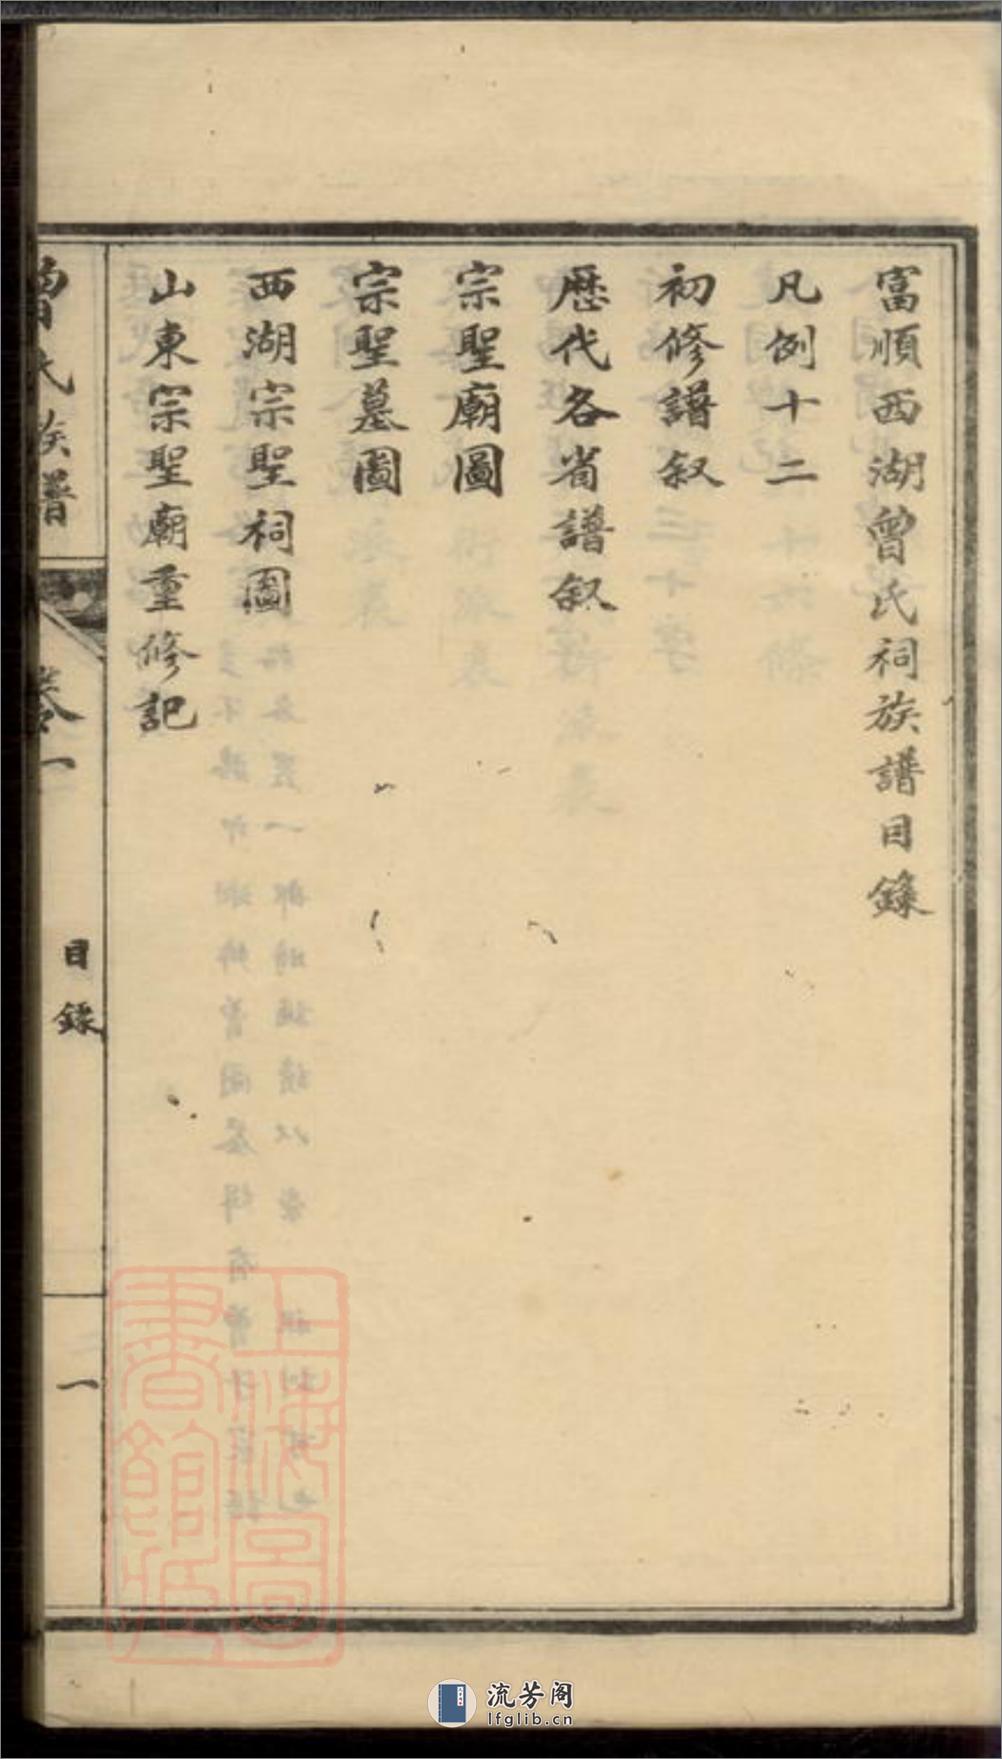 富順西湖曾氏祠族譜目錄
凡例十二
初修譜叙
歷代各省譜叙
宗聖廟圖
宗聖墓圖
西湖宗聖祠圖
山東宗聖廟重修記
曾氏族譜
卷一
目錄
一
上海圖書館藏
流芳阁
lfglib.cn